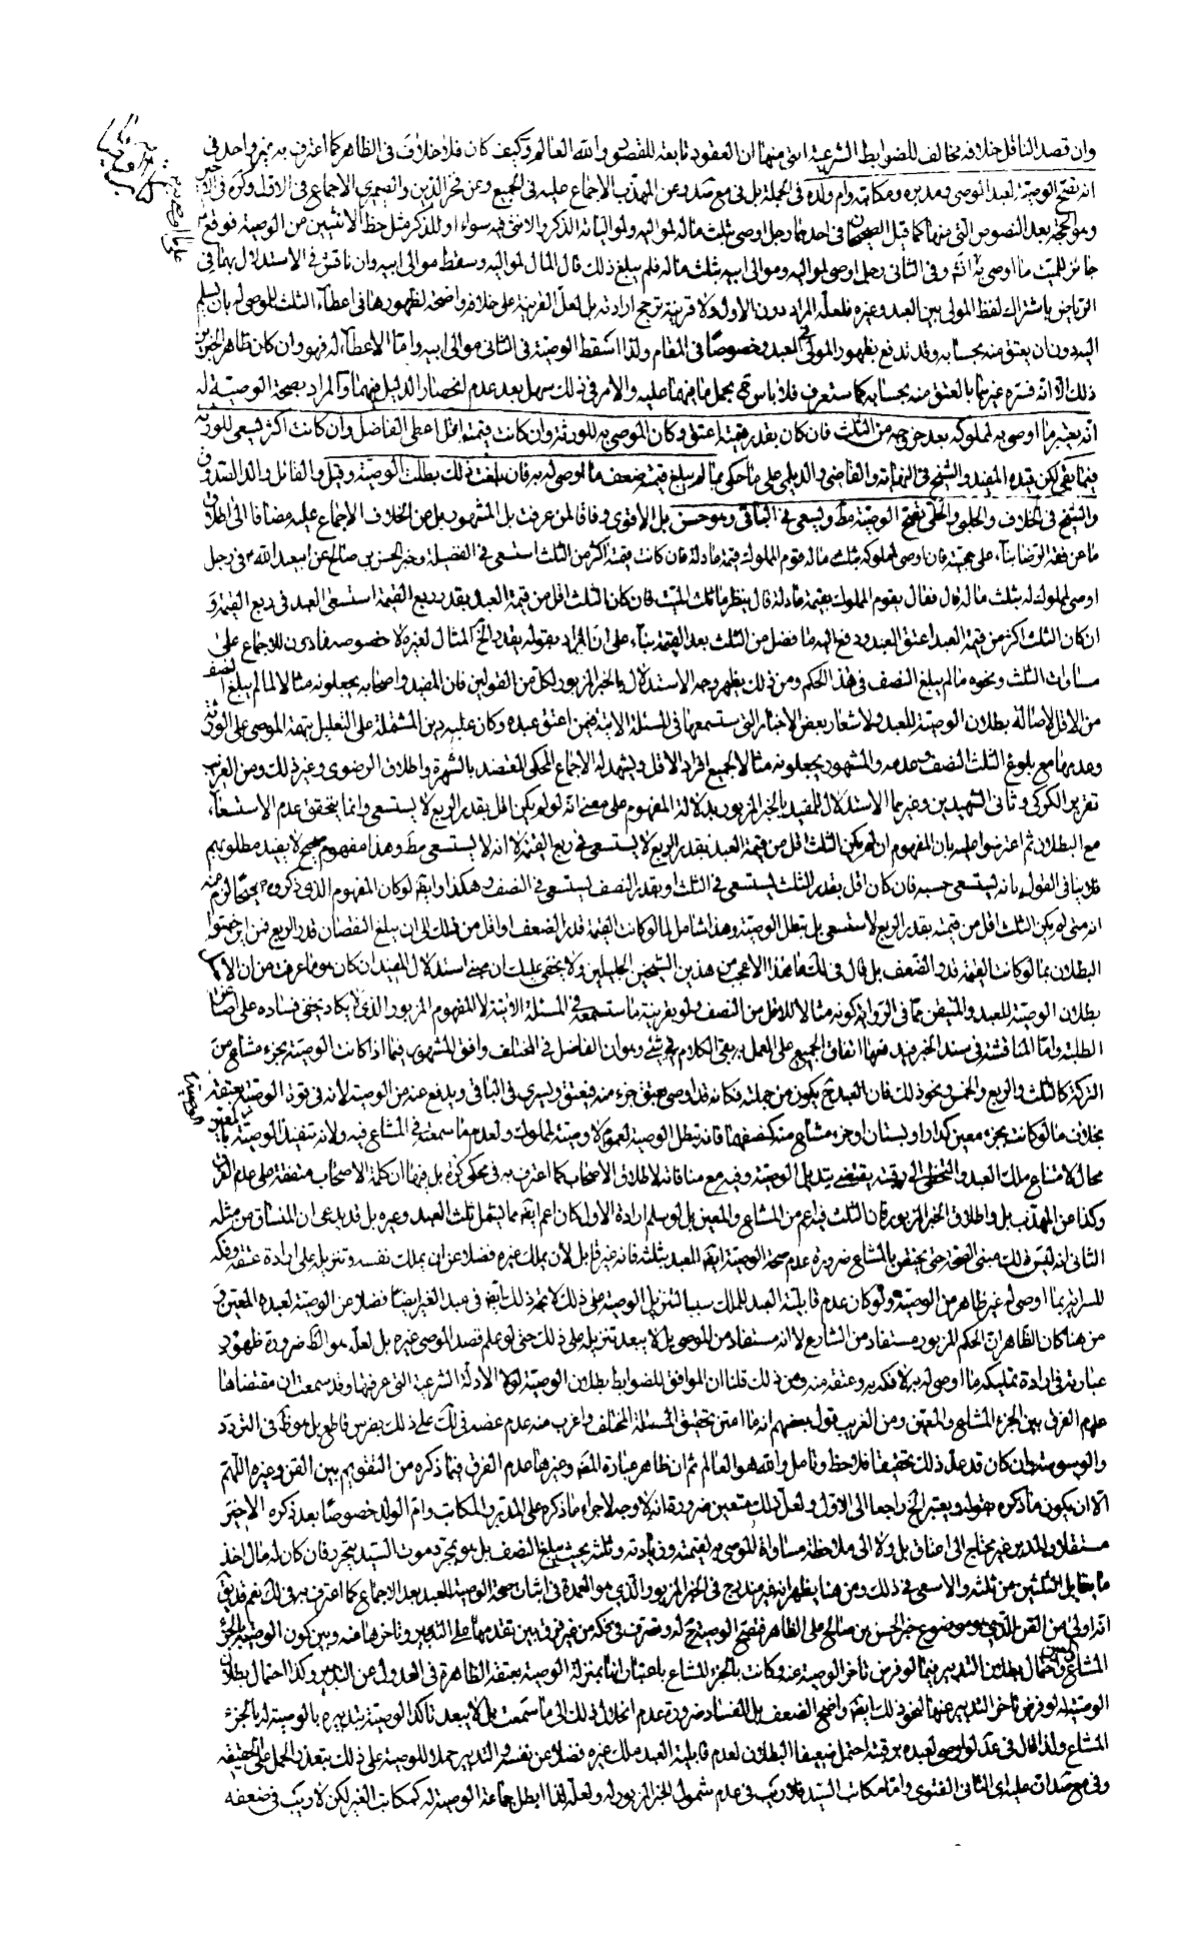 وان قصد الناقل خلافه مخالف للضوابط الشرعية انتهى منها ان العقود تابعة للقصود والله العالم وكيف كان فلا خلاف فى الظاهر كما اعترف به غير واحد فى
انه تصح الوصية لعبد الموصى ومدبره ومكاتبه وام ولده فى الجملة بل فى مع صد وعن المهذب الاجماع عليه فى الجميع وعن فخر الدين والصيمرى الاجماع فى الاول وكره فى
وهو الحجة بعد النصوص التى منها كما قيل الصحيحان فى احدهما رجل اوصى بثلث ماله لمواليه ولموالياته الذكر والانثى فيه سواء او للذكر مثل حظ الانثيين من الوصية فوقع
جائز للميت ما اوصى به وفى الثانى رجل اوصى لمواليه وموالى ابيه بثلث ماله فلم يبلغ ذلك قال المال لمواليه وسقط موالى ابيه وان ناقش فى الاستدلال بهما فى
الرياض باشتراك لفظ المولى بين العبد وغيره فلعله المراد دون الاول ولا قرينة ترجح ارادته بل لعل القرينة على خلافه واضحة لظهورهما فى اعطاء الثلث للموصى له بان يسلم
اليه دون ان يعتق منه بحسابه وقد تدفع بظهور المولى فى العبد وخصوصا فى المقام ولذا اسقط الوصية فى الثانى موالى ابيه واما الاعطاء له فهو وان كان ظاهر الخبرين
ذلك الا انه فسره غيرهما بالعتق منه بحسابه كما ستعرف فلا باس بحمل ما فيهما عليه والامر فى ذلك سهل بعد عدم انحصار الدليل فيهما والمراد بصحة الوصية له
انه يعتبر ما اوصى به لمملوكه بعد خروجه من الثلث فان كان بقدر قيمته اعتق وكان الموصى به للورثة وان كانت قيمته اقل اعطى الفاضل وان كانت اكثر سعى للورثة
فيما بقى لكن قيده المفيد والشيخ فى النهاية والقاضى والديلمى على ما حكى بما لم يبلغ قيمته ضعف ما اوصى له به فان بلغت ذلك بطلت الوصية وقيل والقائل والد الصدوق
والشيخ فى الخلاف والحلبى والحلى تصح الوصية مط ويسعى فى الباقى وهو حسن بل الاقوى وفاقا لمن عرفت بل المشهور بل عن الخلاف الاجماع عليه مضافا الى اطلاق
ما عن فقه الرضا بناء على حجيته فان اوصى لمملوكه بثلث ماله قوم المملوك قيمة عادلة فان كانت قيمته اكثر من الثلث استسعى فى الفضيلة وخبر الحسن بن صالح عن ابيعبد الله فى رجل
اوصى لمملوك له بثلث ماله قال فقال يقوم المملوك بقيمة عادلة قال ينظر ما ثلث الميت فان كان الثلث اقل من قيمة العبد بقدر ربع القيمة استسعى العبد فى ربع القيمة و
ان كان الثلث اكثر من قيمة العبد اعتق العبد ودفع اليه ما فضل من الثلث بعد القيمة بناء على ان المراد بقوله بقدر الخ المثال لغيره لا خصوصه فادون للاجماع على
مساوات الثلث ونحوه مما لم يبلغ النصف فى هذا الحكم ومن ذلك يظهر وجه الاستدلال بالخبر المزبور لكل من القولين فان المفيد واصحابه يجعلونه مثالا لما لم يبلغ النصف
من الاقل لاصالة بطلان الوصية للعبد ولاشعار بعض الاخبار التى ستسمعها فى المسئلة الاتية فيمن اعتق عبده وكان عليه دين المشتملة على التعليل بتهمة الموصى على الورثة
وعدمها مع بلوغ الثلث النصف وعدمه والمشهور يجعلونه مثالا لجميع افراد الاقل ويشهد له الاجماع المحكى المعتضد بالشهرة واطلاق الرضوى وغير ذلك ومن الغريب
تقرير الكركى وثانى الشهيدين وغيرهما الاستدلال للمفيد بالخبر المزبور بدلالة المفهوم على معنى انه لو لم يكن اقل بقدر الربع لا يستسعى وانما يتحقق عدم الاستسعاء
مع البطلان ثم اعترضوا عليه بان المفهوم ان لم يكن الثلث اقل من قيمة العبد بقدر الربع لا يستسعى فى ربع القيمة لا انه لا يستسعى مط وهذا مفهوم صحيح لا يفيد مطلوبهم
فلا ينافى القول بانه يستسعى بحسبه فان كان اقل بقدر الثلث يستسعى فى الثلث او بقدر النصف يستسعى فى النصف وهكذا وايضا لو كان المفهوم الذى ذكروه صحيحا لزم منه
انه متى لم يكن الثلث اقل من قيمته بقدر الربع لا يستسعى بل تبطل الوصية وهذا شامل لما لو كانت القيمة قدر الضعف او اقل من ذلك الى ان يبلغ النقصان قدر الربع فمن اين خصوا
البطلان بما لو كانت القيمة قدر الضعف بل قال فى لك هذا الاعجب من هذين الشيخين الجليلين ولا يخفى عليك ان مبنى استدلال المفيد ان كان هو ما عرفت من ان الاصل
بطلان الوصية للعبد والمتيقن مما فى الرواية كونه مثالا للاقل من النصف ولو بقرينة ما ستسمعه فى المسئلة الاتية لا المفهوم المزبور الذى لا يكاد يخفى فساده على اصاغر
الطلبة واما المناقشة فى سند الخبر فيدفعها اتفاق الجميع على العمل به بقى الكلام فى شئ وهو ان الفاضل فى المختلف وافق المشهور فيما اذا كانت الوصية بجزء مشاع من
التركة كالثلث والربع والخمس ونحو ذلك فان العبد ح يكون من جملته فكانه قد اوصى بعتق جزء منه فيعتق ويسرى فى الباقى ويدفع عنه من الوصية لانه فى قوة الوصية بعتقه
بخلاف ما لو كانت بجزء معين كدار او بستان او جزء مشاع منه كنصفها فانه تبطل الوصية لعموم لا وصية لمملوك ولعدم ما سمعته فى المشاع فيه ولانه تنفيذ الوصية بالمعين
محال لامتناع ملك العبد والتخطى الى رقبته يقتضى تبديل الوصية وفيه مع منافاته لاطلاق الاصحاب كما اعترف به فى محكى كره بل فيها ان كلمة الاصحاب متفقة على عدم الفرق
وكذا عن المهذب بل واطلاق الخبر المزبور فان الثلث فيه اعم من المشاع والمعين بل لو سلم ارادة الاول كان اعم ايضا مما يشمل ثلث العبد وغيره بل قد يدعى ان المنساق من مثله
الثانى انه ليس ذلك مبنى الصحة حتى يختص بالمشاع ضرورة عدم صحة الوصية ايضا للعبد بثلثه فانه غير قابل لان يملك غيره فضلا عن ان يملك نفسه وتنزيله على ارادة عتقه وفكه
للسراية بما اوصى له غير ظاهر من الوصية ولو كان عدم قابلية العبد للملك سببا لتنزيل الوصية على ذلك لاتجه ذلك ايضا فى عبد الغير ايضا فضلا عن الوصية لعبده بالمعين و
من هنا كان الظاهر ان الحكم المزبور مستفاد من الشارع لا انه مستفاد من الموصى بل لا يبعد تنزيله على ذلك حتى لو علم قصد الموصى غيره بل لعله هو الظ ضرورة ظهور
عبارته فى ارادة تمليكه ما اوصى له به لا فكه به وعتقه منه ومن ذلك قلنا ان الموافق للضوابط بطلان الوصية لولا الادلة الشرعية التى عرفتها وقد سمعت ان مقتضاها
عدم الفرق بين الجزء المشاع والمعين ومن الغريب قول بعضهم انه ما امتن تحقيق المسئلة المختلف واغرب منه عدم عضه فى لك على ذلك بضرس قاطع بل هو ظ فى التردد
والوسوسة وان كان قد عد ذلك تحقيقا فلاحظ وتامل والله هو العالم ثم ان ظاهر عبارة المصنف وغيرها عدم الفرق فيما ذكره من التقويم بين القن وغيره اللهم
الا ان يكون ما ذكره هو ويعتبر الخ راجعا الى الاول ولعل ذلك متعين ضرورة انه لا وجه لاجراء ما ذكره على المدبر والمكاتب وام الولد خصوصا بعد ذكره الاخير
مستقلا والمدبر غير محتاج الى اعتاق بل ولا الى ملاحظة مساواة الموصى به لقيمته وزيادته وثلثه بحيث يبلغ النصف بل هو بمجرد موت السيد يتحرر فان كان له مال اخذ
ما يقابل الثلثين من ثلثه والا سعى فى ذلك ومن هنا يظهر انه غير مندرج فى الخبر المزبور الذى هو العمدة فى اثبات صحة الوصية للعبد بعد الاجماع كما اعترف به فى لك نعم قد يق
انه اولى من القن الذى هو موضوع خبر الحسن بن صالح على الظاهر فتصح الوصية ح له وتصرف فى فكه من غير فرق بين تقدمها على التدبير وتاخرها عنه وبين كون الوصية بالجزء
المشاع والمعين واحتمال بطلان التدبير فيما لو فرض تاخر الوصية عنه وكانت بالجزء المشاع باعتبار انها بمنزلة الوصية بعتقه الظاهرة فى العدول عن التدبير وكذا احتمال بطلان
الوصية له لو فرض تاخر التدبير عنها لنحو ذلك ايضا واضح الضعف بل الفساد ضرورة عدم انحلال ذلك الى ما سمعت بل لا يبعد تاكد الوصية بتدبيره بالوصية له بالجزء
المشاع ولذا قال فى عد لو اوصى لعبده برقبته احتمل ضعيفا البطلان لعدم قابلية العبد ملك غيره فضلا عن نفسه والتدبير حملا للوصية على ذلك بتعذر الحمل على الحقيقة
وفى مع صد ان عليه اى الثانى الفتوى واما مكاتب السيد فلا ريب فى عدم شمول الخبر المزبور له ولعله لذا ابطل جماعة الوصية له كمكاتب الغير لكن لا ريب فى ضعفه